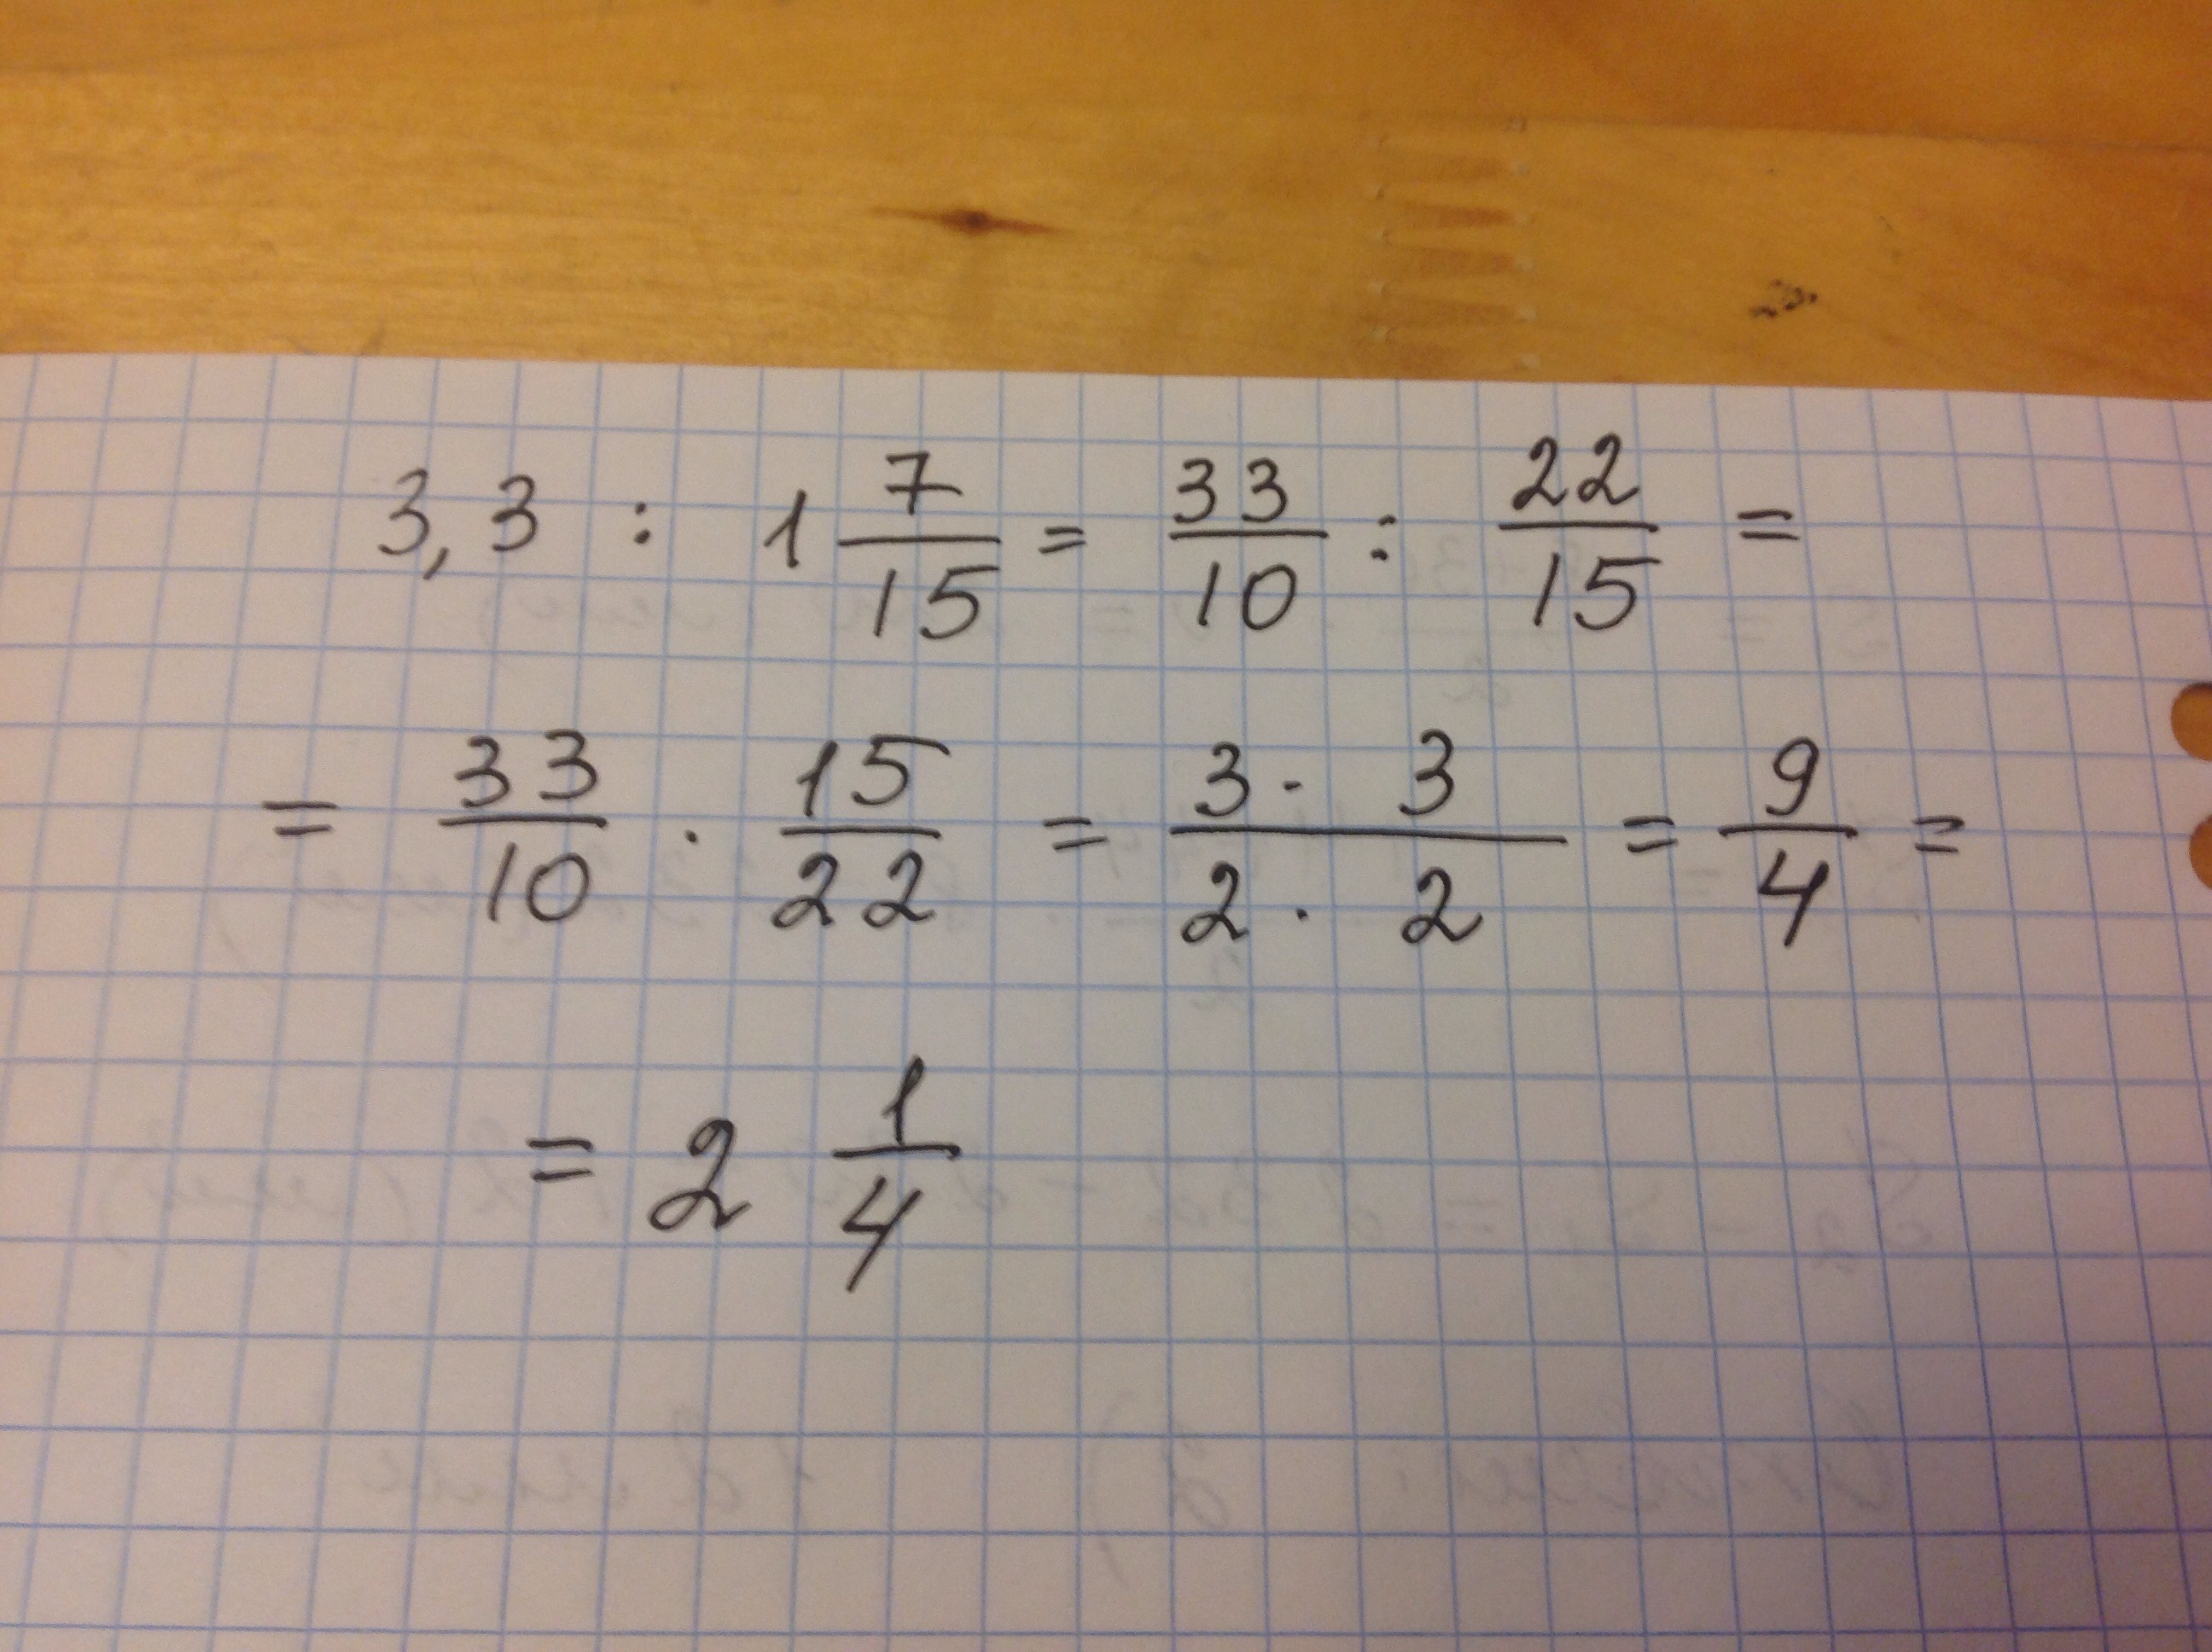 3,3 : 1 7/15 = 33/10 : 22/15 =
= 33/10 · 15/22 = 3 · 3/2 · 2 = 9/4 =
= 2 1/4